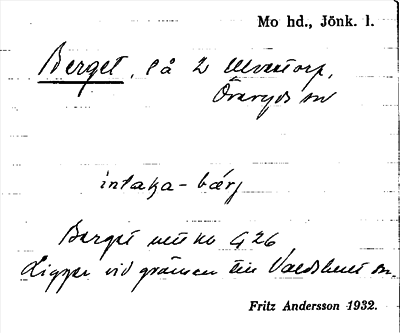 Mo hd., Jönk. l.
Berget, lå 2 Ulvstorp,
Öreryds sn
intaka-bærj
Berget 426
Ligger vid gränsen till Valdshults sn.
Fritz Andersson 1932.